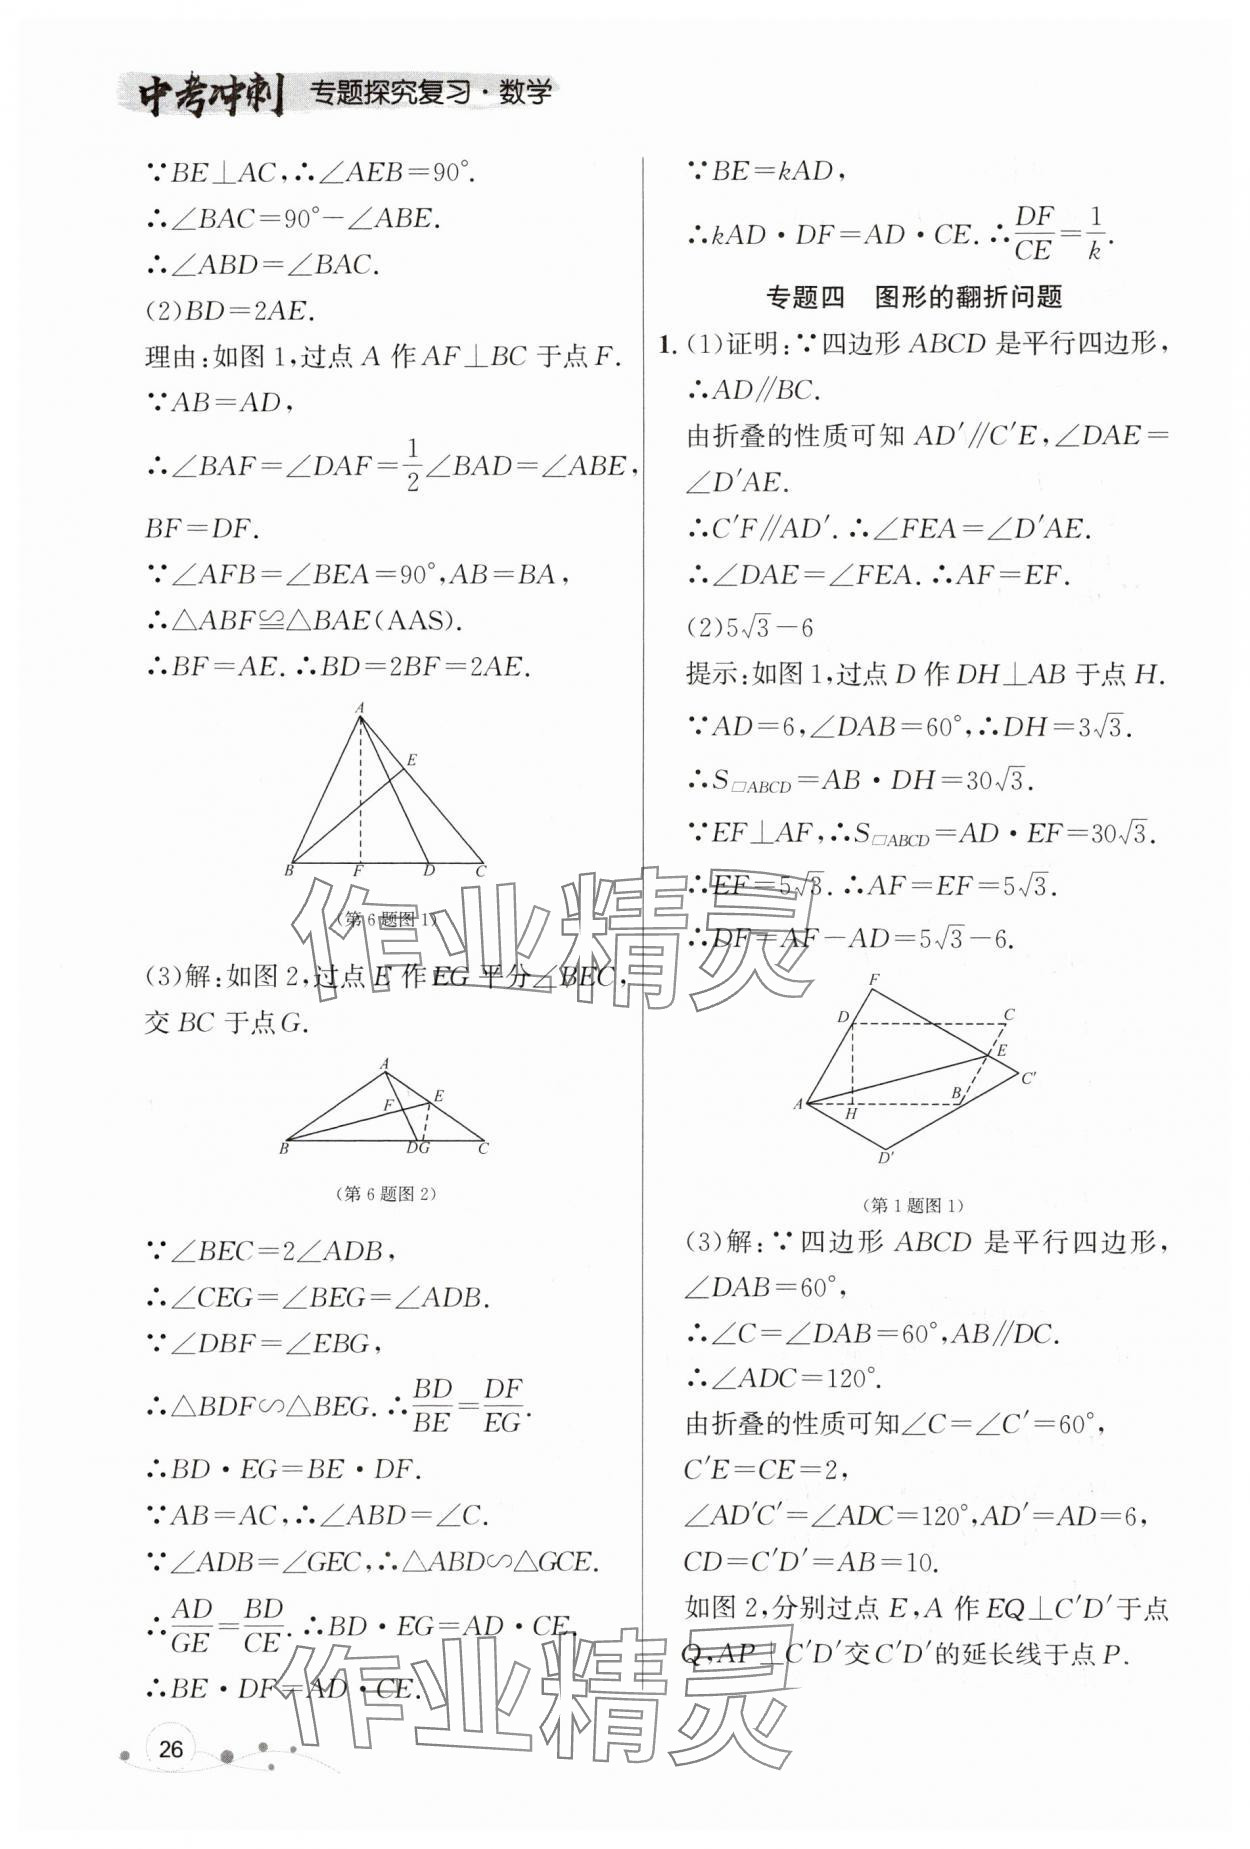 中考冲刺 专题探究复习·数学
∵BE⊥AC,∴∠AEB=90°.
∴∠BAC=90°-∠ABE.
∴∠ABD=∠BAC.
(2)BD=2AE.
理由:如图1,过点A作AF⊥BC于点F.
∵AB=AD,
∴∠BAF=∠DAF=1/2∠BAD=∠ABE,
BF=DF.
∵∠AFB=∠BEA=90°,AB=BA,
∴△ABF≌△BAE(AAS).
∴BF=AE.∴BD=2BF=2AE.
A
E
B F D C
(第6题图1)
(3)解:如图2,过点E作EG平分∠BEC,
交BC于点G.
A
F E
B DG C
(第6题图2)
∵∠BEC=2∠ADB,
∴∠CEG=∠BEG=∠ADB.
∵∠DBF=∠EBG,
∴△BDF∽△BEG.∴BD/BE=DF/EG.
∴BD·EG=BE·DF.
∵AB=AC,∴∠ABD=∠C.
∵∠ADB=∠GEC,∴△ABD∽△GCE.
∴AD/GE=BD/CE.∴BD·EG=AD·CE.
∴BE·DF=AD·CE.
26
∵BE=kAD,
∴kAD·DF=AD·CE.∴DF/CE=1/k.
专题四 图形的翻折问题
1.(1)证明:∵四边形ABCD是平行四边形,
∴AD∥BC.
由折叠的性质可知AD′∥C′E,∠DAE=
∠D′AE.
∴C′F∥AD′.∴∠FEA=∠D′AE.
∴∠DAE=∠FEA.∴AF=EF.
(2)5√3-6
提示:如图1,过点D作DH⊥AB于点H.
∵AD=6,∠DAB=60°,∴DH=3√3.
∴S▱ABCD=AB·DH=30√3.
∵EF⊥AF,∴S▱ABCD=AD·EF=30√3.
∴EF=5√3.∴AF=EF=5√3.
∴DF=AF-AD=5√3-6.
F
D C
E
C′
A H B
D′
(第1题图1)
(3)解:∵四边形ABCD是平行四边形,
∠DAB=60°,
∴∠C=∠DAB=60°,AB∥DC.
∴∠ADC=120°.
由折叠的性质可知∠C=∠C′=60°,
C′E=CE=2,
∠AD′C′=∠ADC=120°,AD′=AD=6,
CD=C′D′=AB=10.
如图2,分别过点E,A作EQ⊥C′D′于点
Q,AP⊥C′D′交C′D′的延长线于点P.
作业精灵
作业精灵